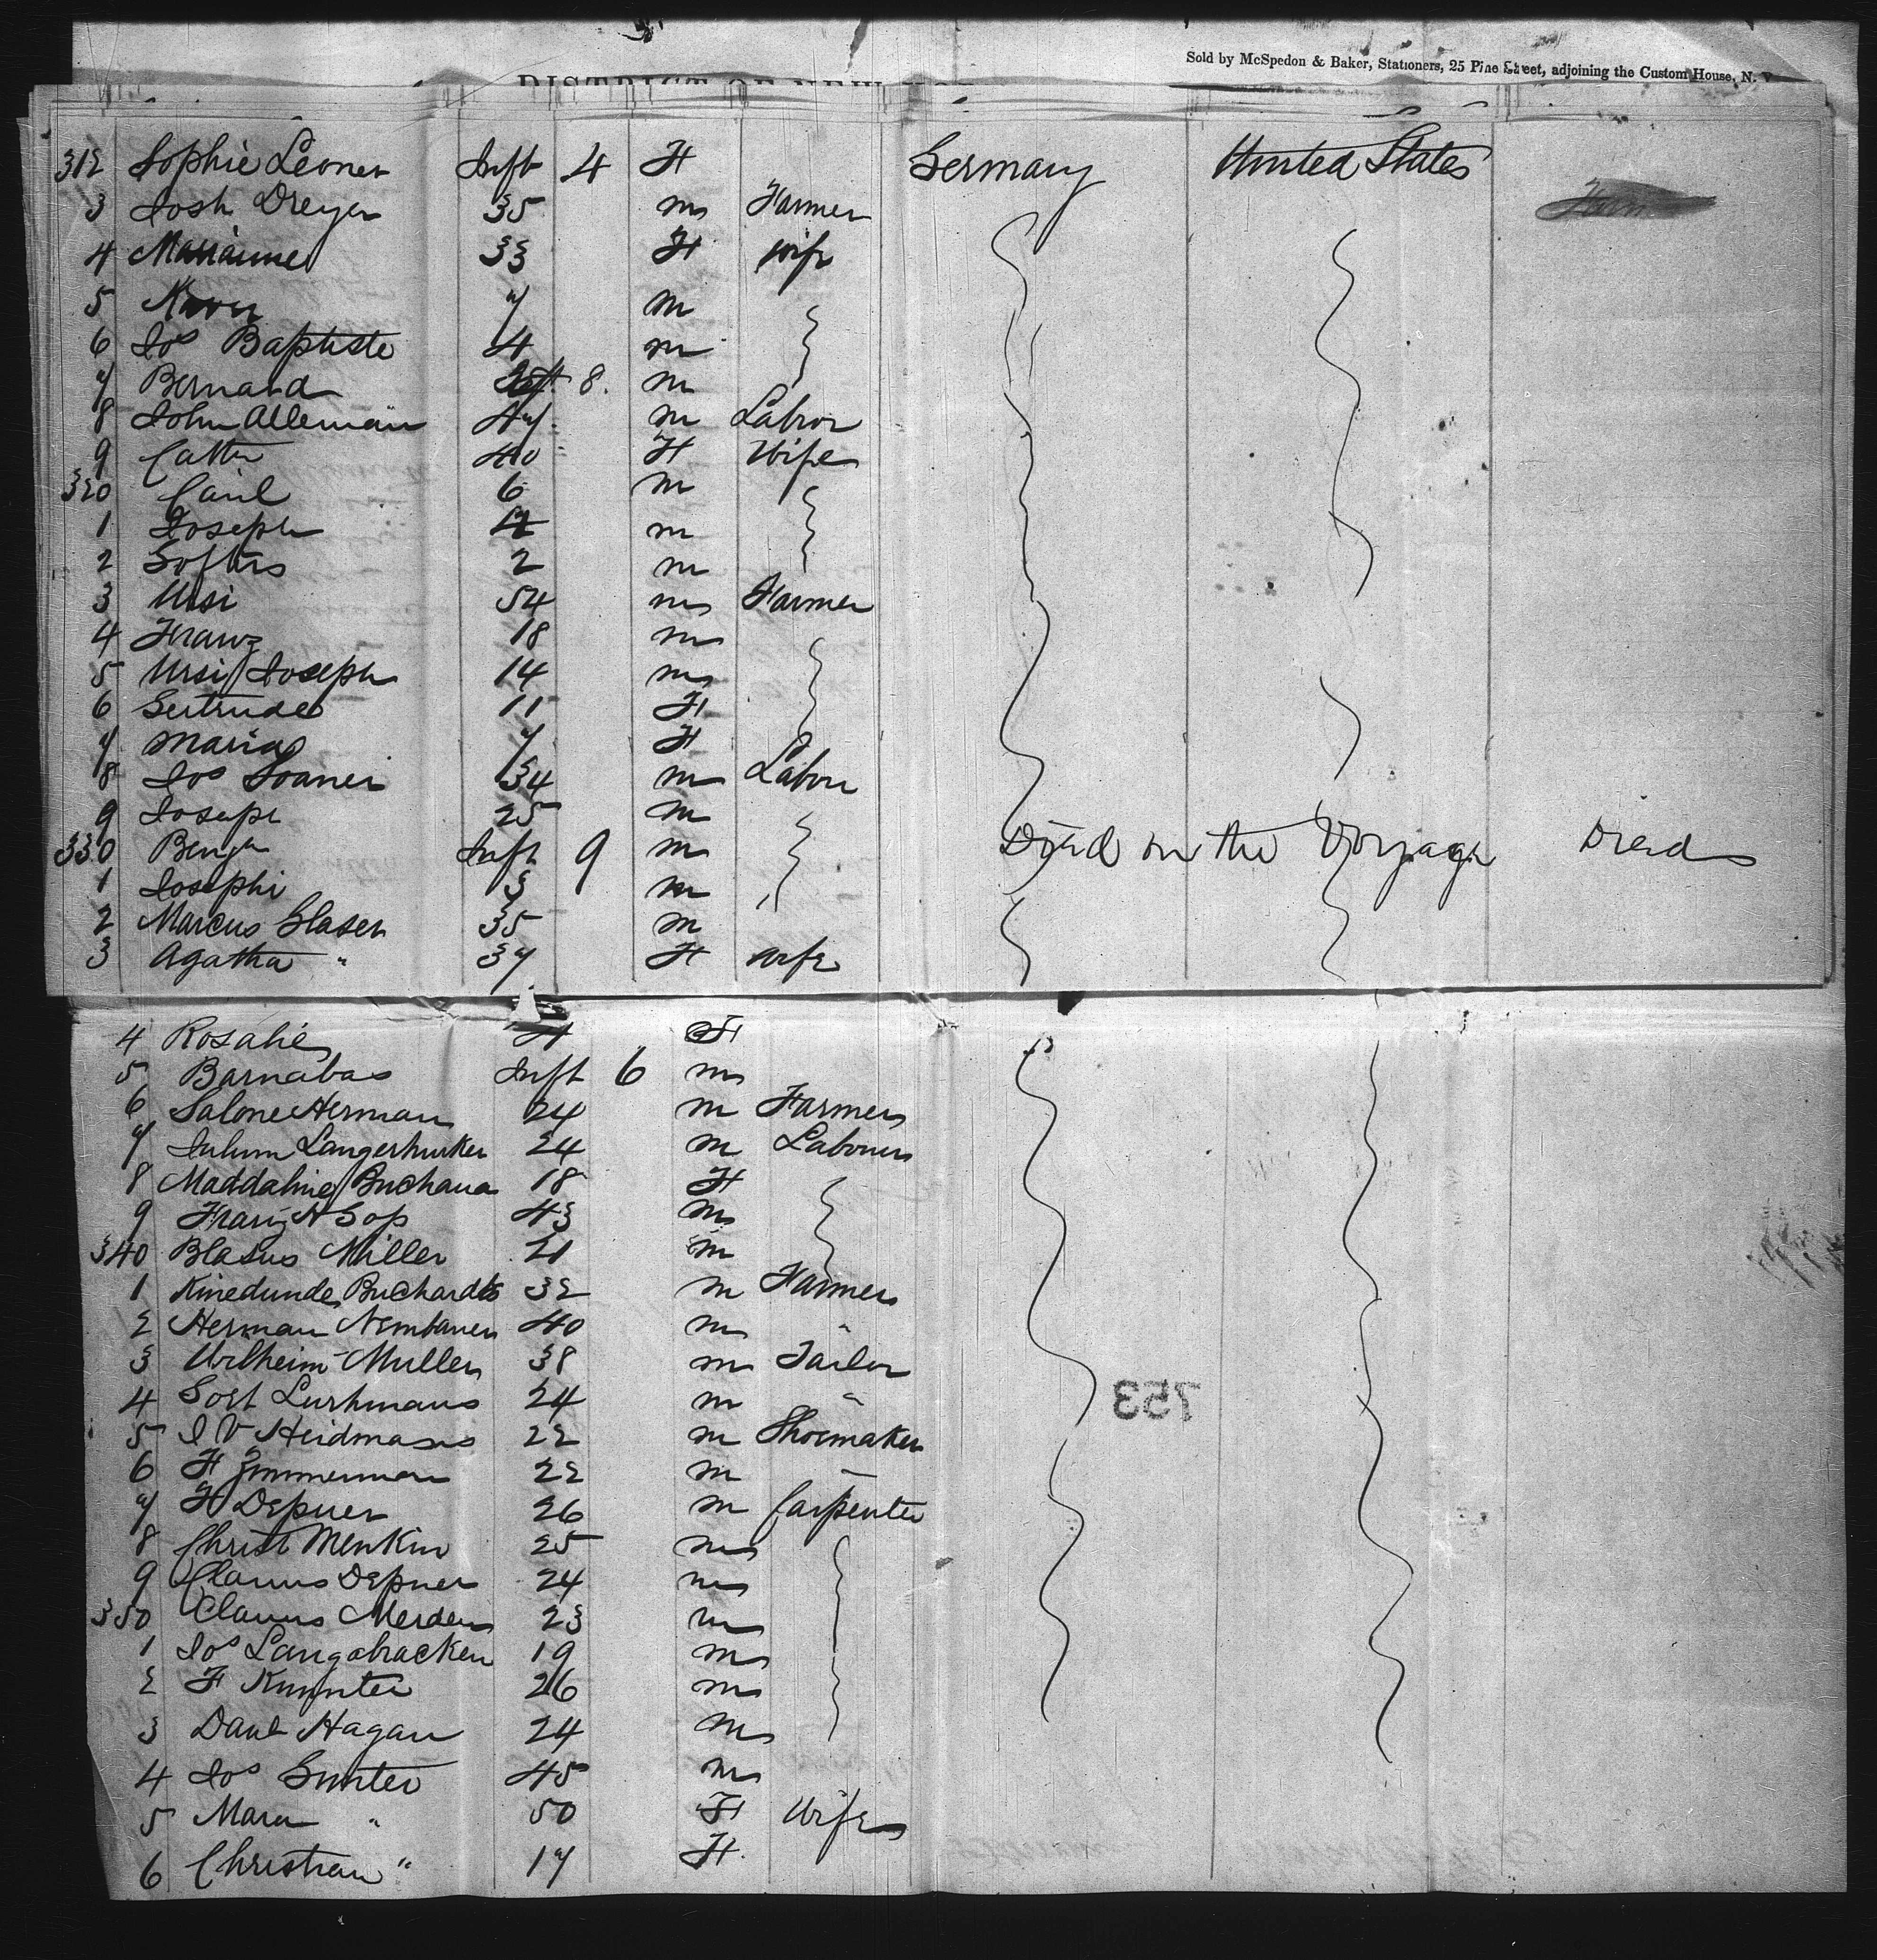 Sold by McSpedon & Baker, Stationers, 25 Pine Street, adjoining the Custom House, N. Y.
DISTRICT OF NEW
312 Sophie Leoner Inft 4 F Germany United States
3 Josh Dreyer 35 m Farmer
4 Marianne 33 F wife
5 7 m
6 Jos Baptiste 4 m
7 Bernard Inft 8 m
8 John Alleman 47 m Labor
9 Cath 40 F Wife
320 Caril 6 m
1 Joseph 12 m
2 2 m
3 Ursi 54 m Farmer
4 Franz 18 m
5 Ursi Joseph 14 m
6 Gertrude 11 F
7 Maria 7 F
8 Jos Soaner 34 m Labour
9 Joseph 25 m
330 Benja Inft 9 m Died on the Voyage Died
1 Josephi 3 m
2 Marcus Glaser 35 m
3 Agatha " 37 F wife
4 Rosalie 4 F
5 Barnabas Inft 6 m
6 Salone Herman 24 m Farmer
7 24 m Labourer
8 Maddaline Buchana 18 F
9 Franz A Sop 43 m
340 Blasus Miller 21 m
1 Kinedunde Buchardts 32 m Farmer
2 Herman 40 m
3 Wilheim Muller 38 m Tailor
4 Gost Lushmans 24 m "
5 J V Heidmans 22 m Shoemaker
6 F Zimmerman 22 m "
7 F Depner 26 m Carpenter
8 Christ Menkin 25 m
9 Claus Depner 24 m
350 Claus Merdens 23 m
1 Jos Langabracken 19 m
2 F 26 m
3 Danl Hagan 24 m
4 Jos Gunter 45 m
5 Mara " 50 F Wife
6 Christian " 17 F
753